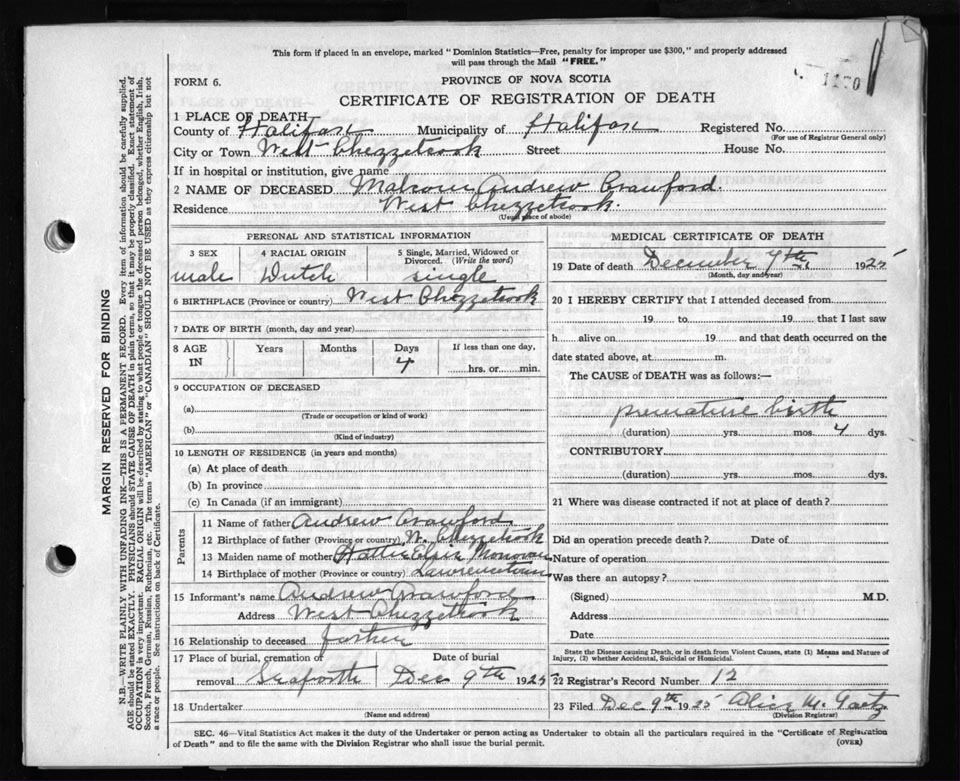 This form if placed in an envelope, marked "Dominion Statistics—Free, penalty for improper use $300," and properly addressed
will pass through the Mail "FREE."
1170
FORM 6.
PROVINCE OF NOVA SCOTIA
CERTIFICATE OF REGISTRATION OF DEATH
1 PLACE OF DEATH
County of Halifax Municipality of Halifax Registered No.
(For use of Registrar General only)
City or Town West Chezzetcook Street House No.
If in hospital or institution, give name
2 NAME OF DECEASED Andrew Crawford.
Residence West Chezzetcook.
(Usual place of abode)
PERSONAL AND STATISTICAL INFORMATION
3 SEX 4 RACIAL ORIGIN 5 Single, Married, Widowed or
Divorced. (Write the word)
male Dutch single
6 BIRTHPLACE (Province or country) West Chezzetcook
7 DATE OF BIRTH (month, day and year)
8 AGE IN Years Months Days If less than one day,
4 hrs. or min.
9 OCCUPATION OF DECEASED
(a)
(Trade or occupation or kind of work)
(b)
(Kind of industry)
10 LENGTH OF RESIDENCE (in years and months)
(a) At place of death
(b) In province
(c) In Canada (if an immigrant)
Parents
11 Name of father Andrew Crawford
12 Birthplace of father (Province or country) W. Chezzetcook
13 Maiden name of mother Hattie Elsie
14 Birthplace of mother (Province or country) Lawrencetown
15 Informant's name Andrew Crawford
Address West Chezzetcook
16 Relationship to deceased father
17 Place of burial, cremation or Date of burial
removal Seaforth Dec 9th 1925
18 Undertaker
(Name and address)
MEDICAL CERTIFICATE OF DEATH
19 Date of death December 7th 1925
(Month, day and year)
20 I HEREBY CERTIFY that I attended deceased from
19 to 19 that I last saw
h alive on 19 and that death occurred on the
date stated above, at m.
The CAUSE of DEATH was as follows:—
premature birth
(duration) yrs. mos. 4 dys.
CONTRIBUTORY
(duration) yrs. mos. dys.
21 Where was disease contracted if not at place of death?
Did an operation precede death? Date of
Nature of operation
Was there an autopsy?
(Signed) M.D.
Address
Date
State the Disease causing Death, or in death from Violent Causes, state (1) Means and Nature of
Injury, (2) whether Accidental, Suicidal or Homicidal.
22 Registrar's Record Number 12
23 Filed Dec 9th 1925 Alice M.
(Division Registrar)
SEC. 46—Vital Statistics Act makes it the duty of the Undertaker or person acting as Undertaker to obtain all the particulars required in the "Certificate of Registration
of Death" and to file the same with the Division Registrar who shall issue the burial permit.
(OVER)
MARGIN RESERVED FOR BINDING
N.B.—WRITE PLAINLY WITH UNFADING INK—THIS IS A PERMANENT RECORD. Every item of information should be carefully supplied.
AGE should be stated EXACTLY. PHYSICIANS should STATE CAUSE OF DEATH in plain terms, so that it may be properly classified. Exact statement of
OCCUPATION is very important. RACIAL ORIGIN will be described by stating to what people or tongue the deceased person belonged, whether English, Irish,
Scotch, French, German, Russian, Ruthenian, etc. The terms "AMERICAN" or "CANADIAN" SHOULD NOT BE USED as they express citizenship but not
a race or people. See instructions on back of Certificate.